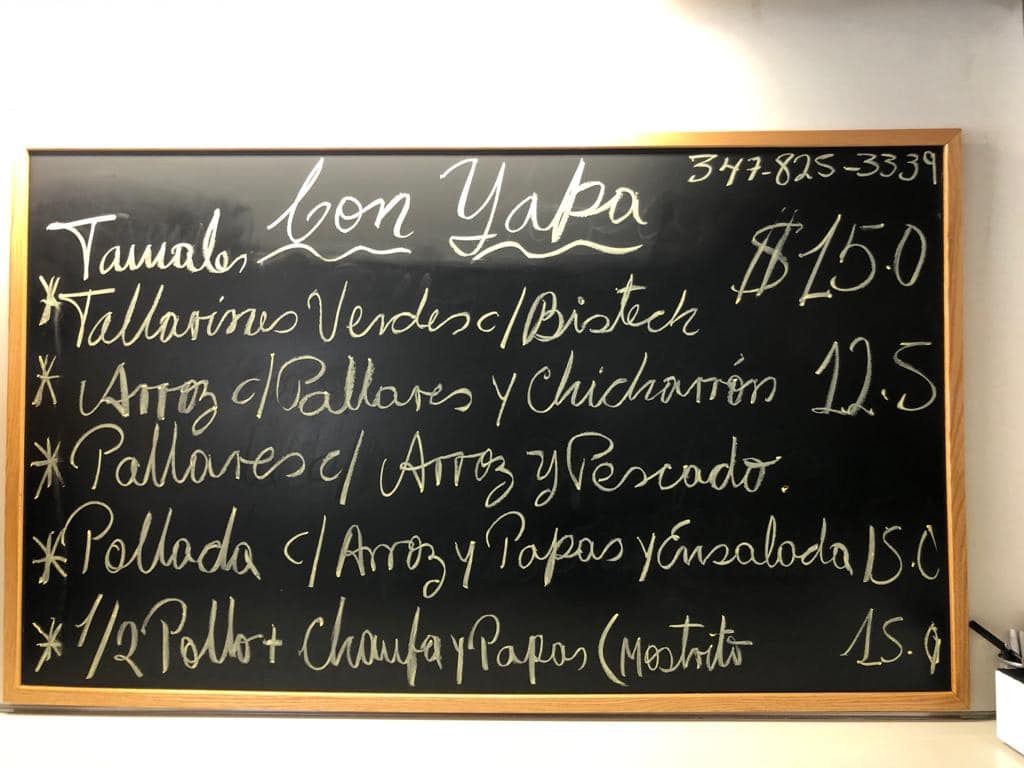 347-825-3339
Con Yapa
Tamales
$15.0
* Tallarines Verdes c/Bisteck
* Arroz c/Pallares y Chicharrón 12.5
* Pallares c/ Arroz y Pescado.
* Pollada c/ Arroz y Papas y Ensalada 15.0
* 1/2 Pollo + Chaufa y Papas (Mostrito 15.0